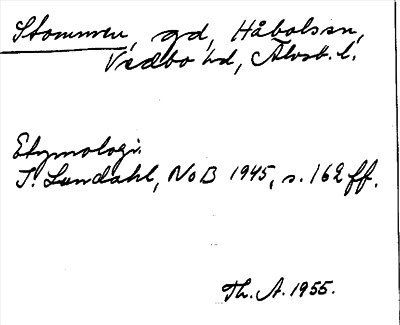 Stommen, gd, Håbolssn,
Vedbo hd, Älvsb. l.
Etymologi.
I. Lundahl, NoB 1945, s. 162 ff.
Th. A. 1955.